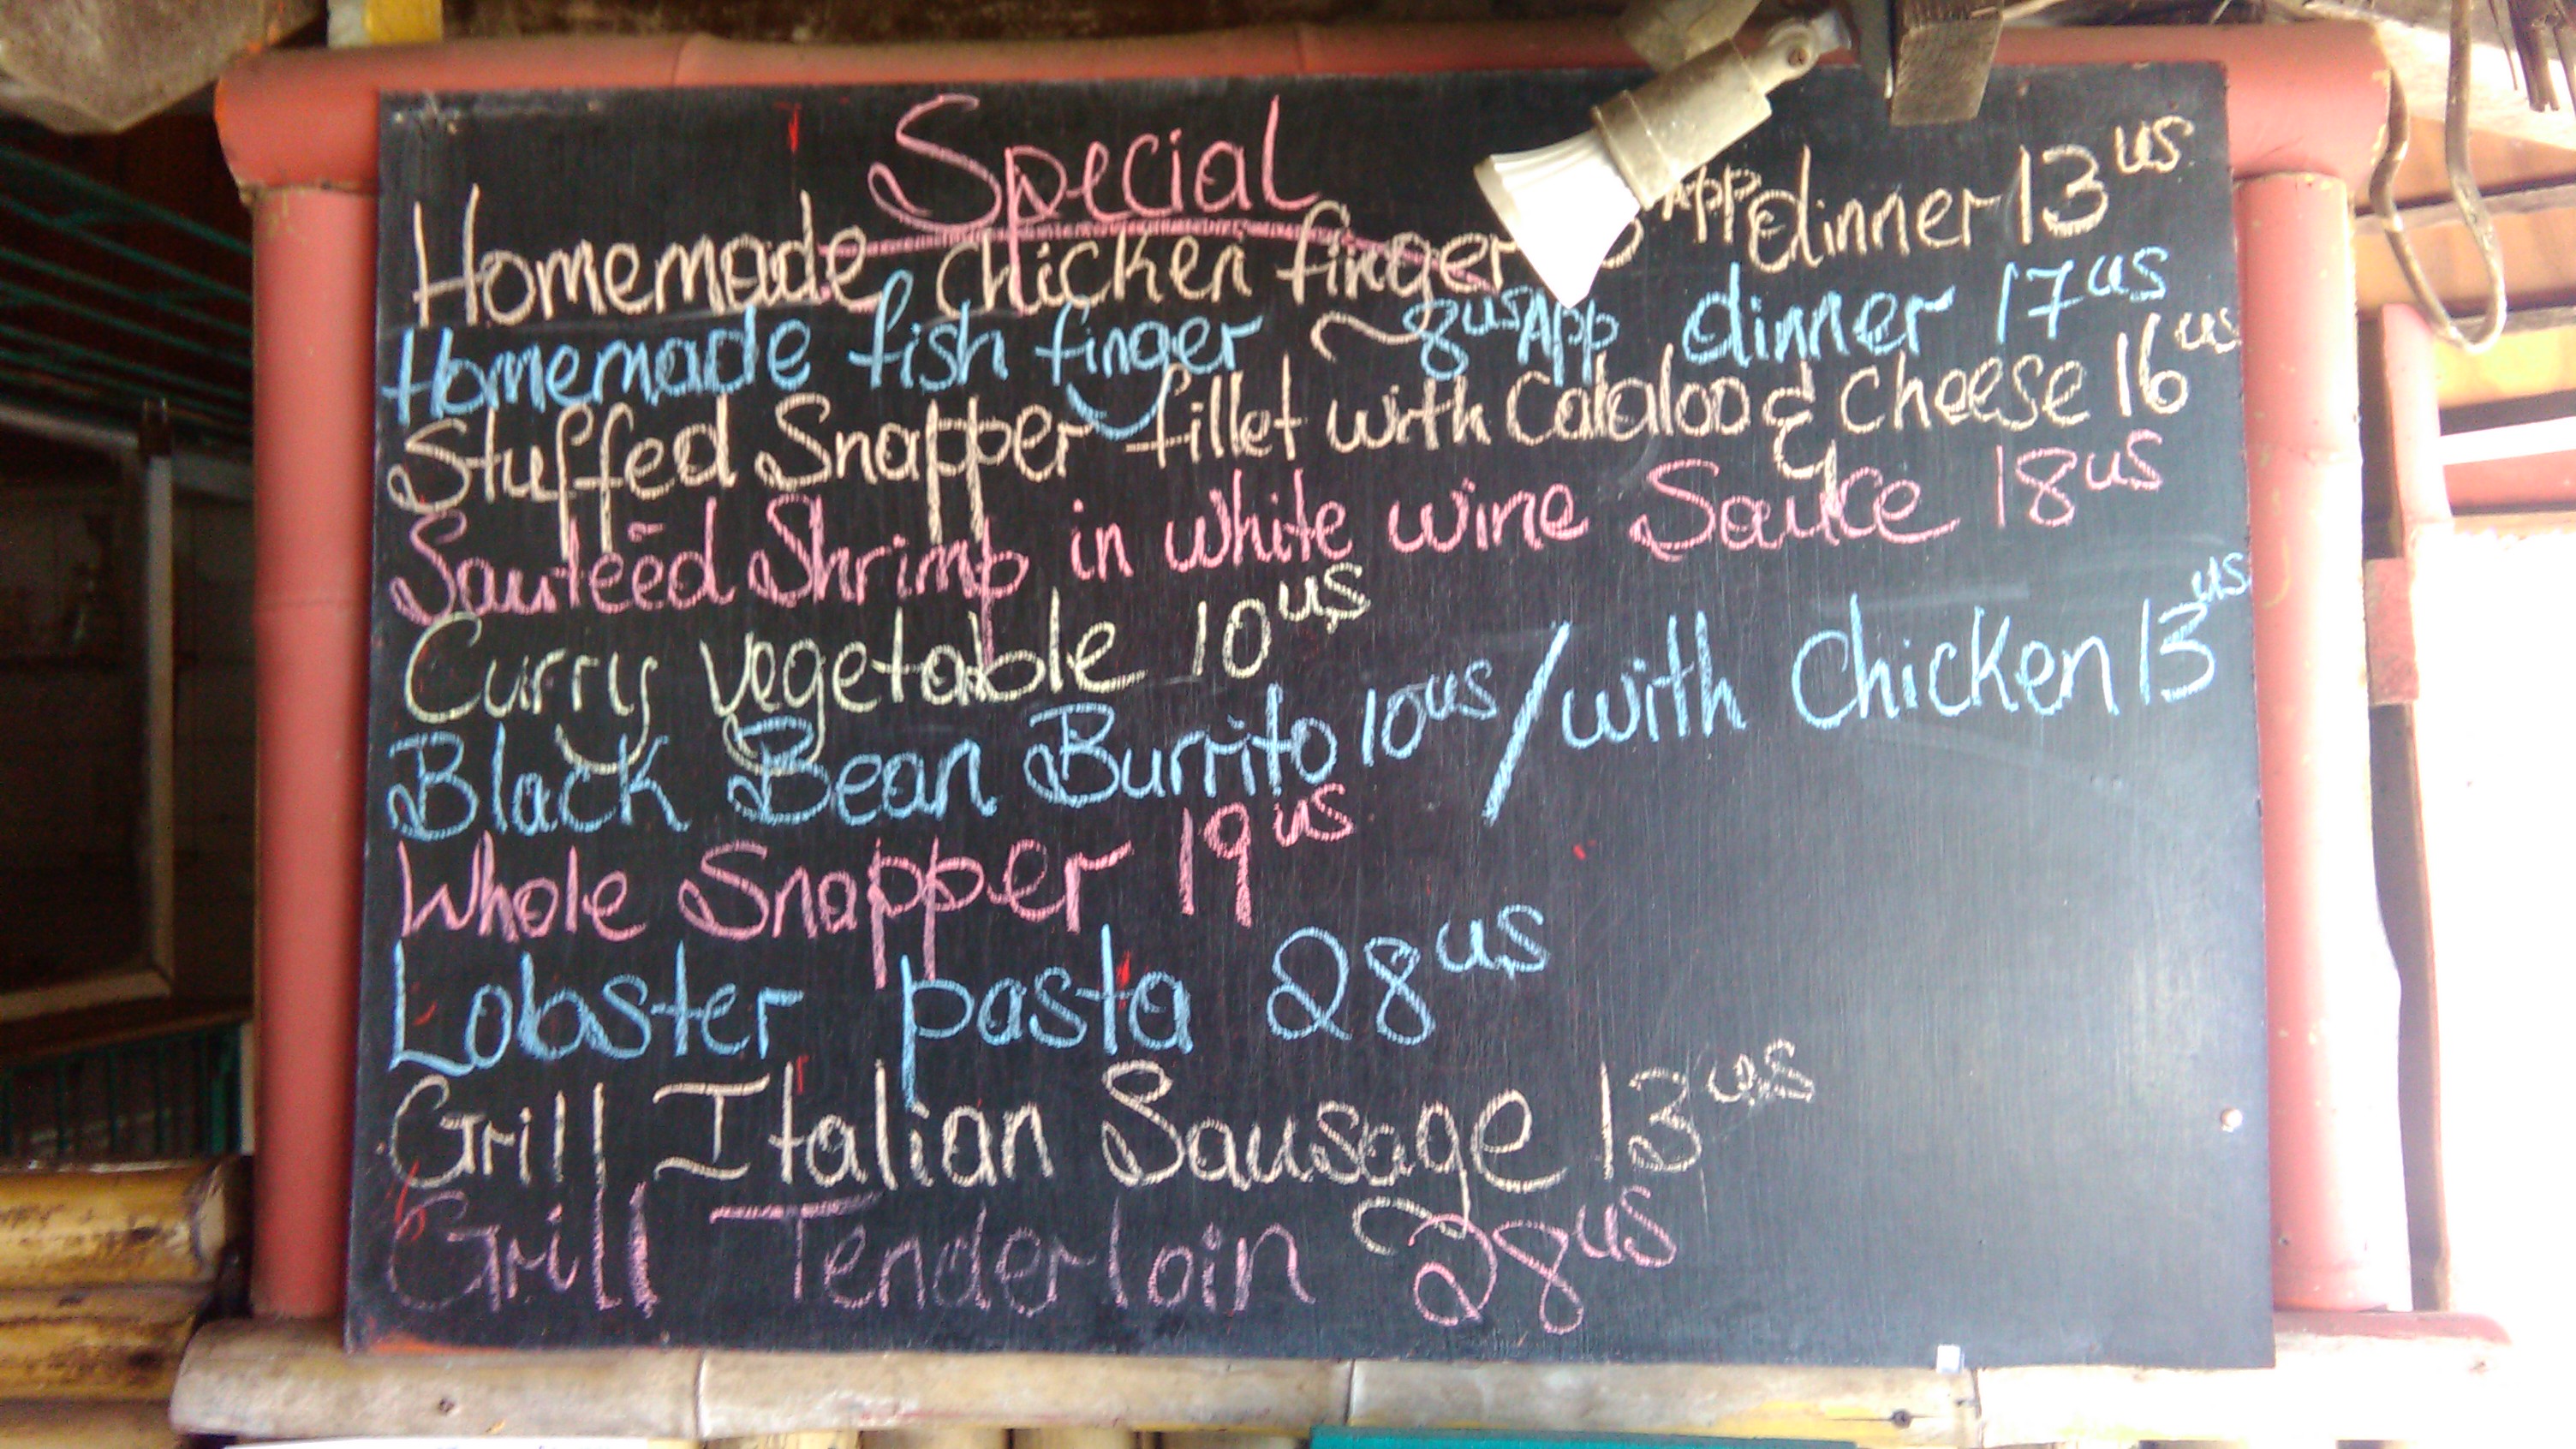 Special
Homemade chicken finger App dinner 13 us
Homemade fish finger 8 us App dinner 17 us
Stuffed Snapper fillet with Calaloo & Cheese 16 us
Sauteed Shrimp in white wine Sauce 18 us
Curry vegetable 10 us
Black Bean Burrito 10 us / with Chicken 13 us
Whole Snapper 19 us
Lobster pasta 28 us
Grill Italian Sausage 13 us
Grill Tenderloin 28 us